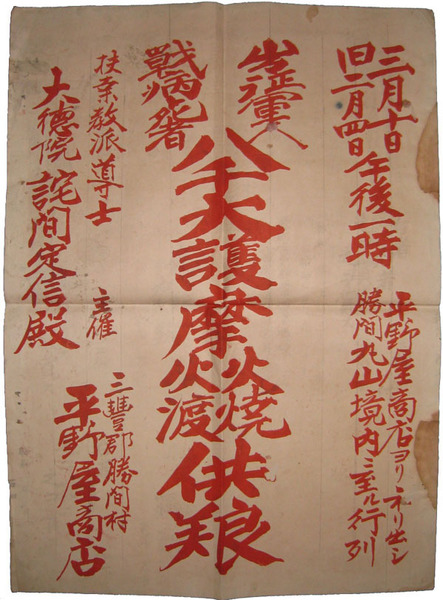 三月十日
旧二月四日
午後一時
平野屋商店ヨリネリ出シ
勝間丸山境内ニ至ル行列
出征軍人
戰病死者
八千大護摩
火焼
火渡
供粮
扶桑教派導士
大徳院 詫間定信殿
主催
三豐郡勝間村
平野屋商店